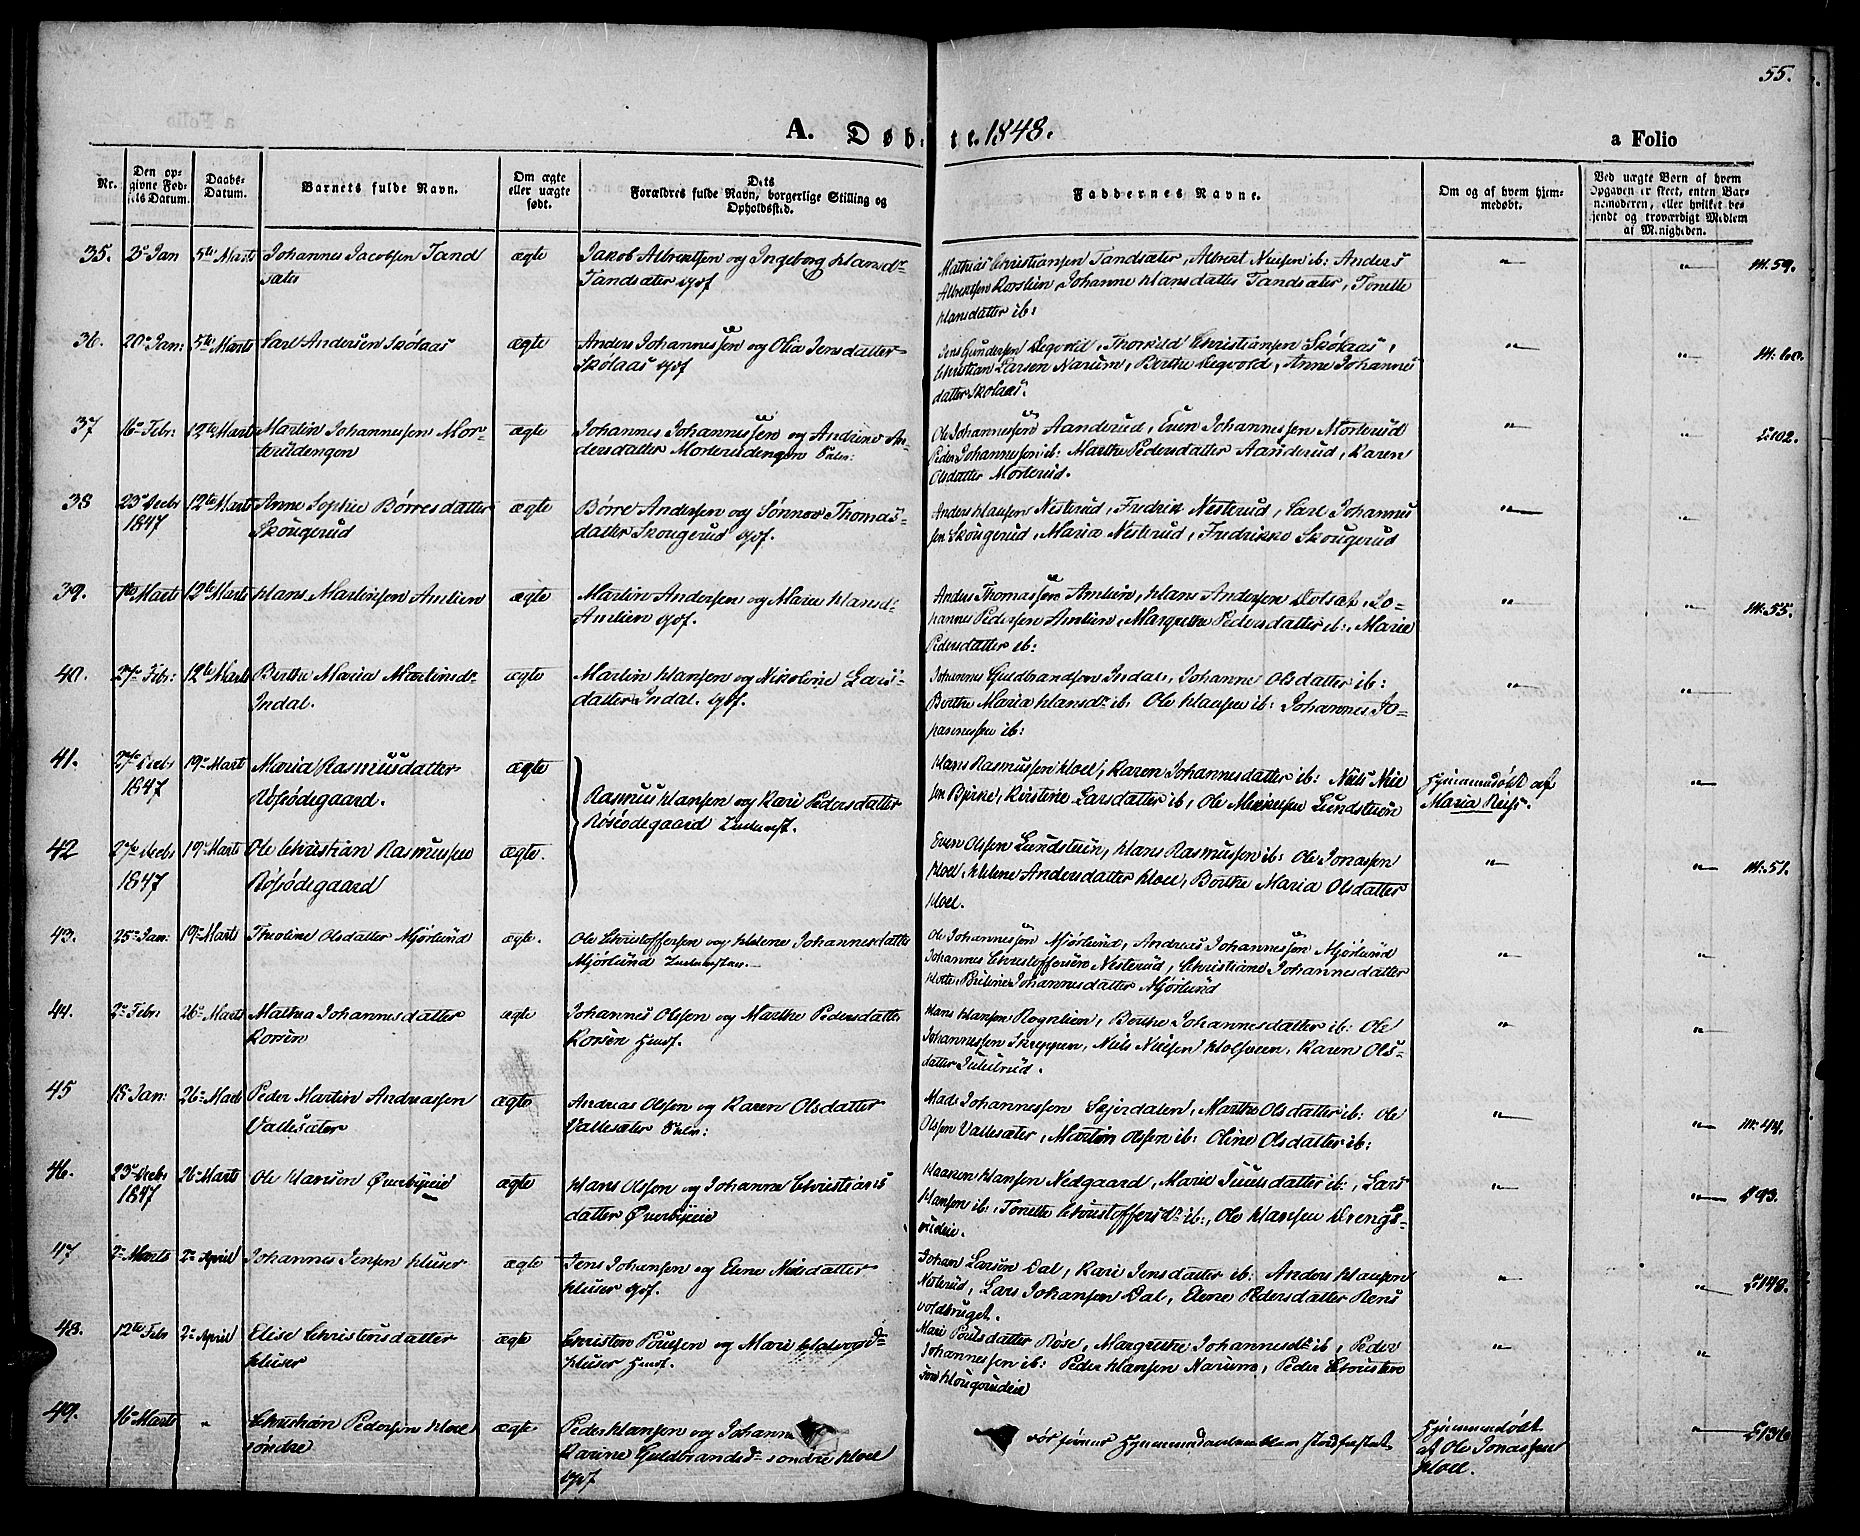 55.
A. Døb- te. 1848.
a Folio
Nr.
Den op-
givne Fød-
sels Datum.
Daabs-
Datum.
Barnets fulde Navn.
Om ægte
eller uægte
født.
Dets
Forældres fulde Navn, borgerlige Stilling og
Opholdssted.
Faddernes Navne.
Om og af hvem hjem-
medøbt.
Ved uægte Børn af hvem
Opgaven er skeet, enten Bar-
nemoderen, eller hvilket be-
kjendt og troværdigt Medlem
af Menigheden.
35. Jan 5te Mart Johannes Jacobsen Tand
sæter
ægte
Jakob Albrektsen og Ingeborg Hansdr
Tandsæter
Mathias Christiansen Tandsæter, Albert Nielsen ib: Anders
Albrektsen Korslien, Johanne Hansdatter Tandsæter, Tonette
Hansdatter ib:
"
"
M. 59.
36. 20 Jan: 5te Marts Carl Andersen Skølaas
ægte
Anders Johannessen og Olia Jensdatter
Skølaas
Jens Gundersen Thorkild Christiansen Skølaas,
Christian Larsen Narum, Berthe Anne Johannes
datter Skølaas.
"
"
M. 60.
37 16 Febr: 12te Mart Martin Johannessen Mor-
terudengen
ægte
Johannes Johannessen og Andrine An-
dersdatter Morterudengen
Ole Johannessen Aanderud, Even Johannessen Morterud
Peder Johannessen ib: Marthe Pedersdatter Aanderud, Karen
Olsdatter Morterud.
"
"
102.
38 23 Decbr
1847
12te Mart Anne Sophie Børresdatter
Skougerud
ægte
Børre Andersen og Sønnov Thomas-
datter Skougerud
Anders Hansen Nesterud, Fredrik Nesterud, Carl Johannes
sen Skougerud, Maria Nesterud, Fredrikke Skougerud
"
"
39. Marts 12te Marts Hans Martinsen Amlien
ægte
Martin Andersen og Maria Hansd:
Amlien
Anders Thomassen Amlien, Hans Andersen Jo-
hannes Pedersen Amlien, Margrethe Pedersdatter ib:, Marie
Pedersdatter ib:
"
"
M. 55.
40. 27 Febr: 12te Marts Berthe Maria Martinsdr
Indal.
ægte
Martin Hansen og Nikoline Lars-
datter Indal.
Johannes Guldbrandsen Indal, Johanne Olsdatter ib:
Berthe Maria Hansdr ib: Ole Hansen ib: Johannes Jo-
hannessen ib:
"
"
41. 27 Decbr
1847
19 Mart Maria Rasmusdatter
Røsødegaard.
ægte
Rasmus Hansen og Kari Pedersdatter
Røsødegaard
Hans Rasmussen Hoel, Karen Johannesdatter ib: Niels Niel
sen Bjerke, Kirstine Larsdatter ib, Ole Lundstuen
Hjemmedøbt af
Maria
"
42 27 Decbr
1847
19 Marts Ole Christian Rasmussen
Røsødegaard
ægte.
Even Olsen Lundstuen, Hans Rasmussen ib: Ole Jonassen
Hoel, Helene Andersdatter Hoel, Berthe Maria Olsdatter
Hoel.
"
"
M. 51.
43. 25 Jan: 19 Marts Theoline Olsdatter Mjørlund
ægte.
Ole Christoffersen og Helene Johannesdatter
Mjørlund
Ole Johannessen Mjørlund, Andreas Johannessen Mjørlund
Johannes Christoffersen Nesterud, Christiane Johannesdatter
Johannesdatter Mjørlund
"
"
44. 2 Febr 26 Marts Mathea Johannesdatter
Korsen
ægte
Johannes Olsen og Marthe Pedersdatter
Korsen
Hans Hansen Rognlien, Berthe Johannesdatter ib: Ole
Johannessen Niels Nielsen Karen Ols-
datter
"
"
45 18 Jan: 26 Mart Peder Martin Andreassen
Vallesæter
ægte
Andreas Olsen og Karen Olsdatter
Vallesæter
Mads Johannessen Skjerdalen, Marthe Olsdatter ib: Ole
Olsen Vallesæter, Martin Olsen ib: Oline Olsdatter ib:
"
"
M. 44.
46. 23 Decbr
1847
26 Marts Ole Hansen Øverbyeie
ægte
Hans Olsen og Johanne Christians
datter Øverbyeie
Haavon Hansen Nedgaard, Marie Juulsdatter ib:, Lars
Hansen ib:, Tonette Christoffersdr ib:, Ole Hansen Drengs-
rudeie.
"
"
93.
47 2 Marts 2 April Johannes Jensen Huser
ægte
Jens Johansen og Elene Nilsdatter
Huser
Johan Larsen Dal, Kari Jensdatter ib: Anders Hansen
Nesterud, Lars Johansen Dal, Elene Pedersdatter Rens
voldbruget.
"
"
148.
48. 12te Febr 2 April Elise Christensdatter
Huser
ægte
Christen Poulsen og Mari Halvorsdr
Huser
Mari Poulsdatter Røse, Margrethe Johannesdr ib, Peder
Johannessen ib: Peder Hansen Narum, Peder Christen
sen Hougsrudeie
"
"
49. 16 Marts " Christian Pedersen Hoel
søndre
ægte
Peder Hansen og Johanne
Karine Guldbrandsdr søndre Hoel
før Hjemmedaaben blev stadfæstet
Hjemmedøbt
af Ole Jonassen
Hoel.
"
136